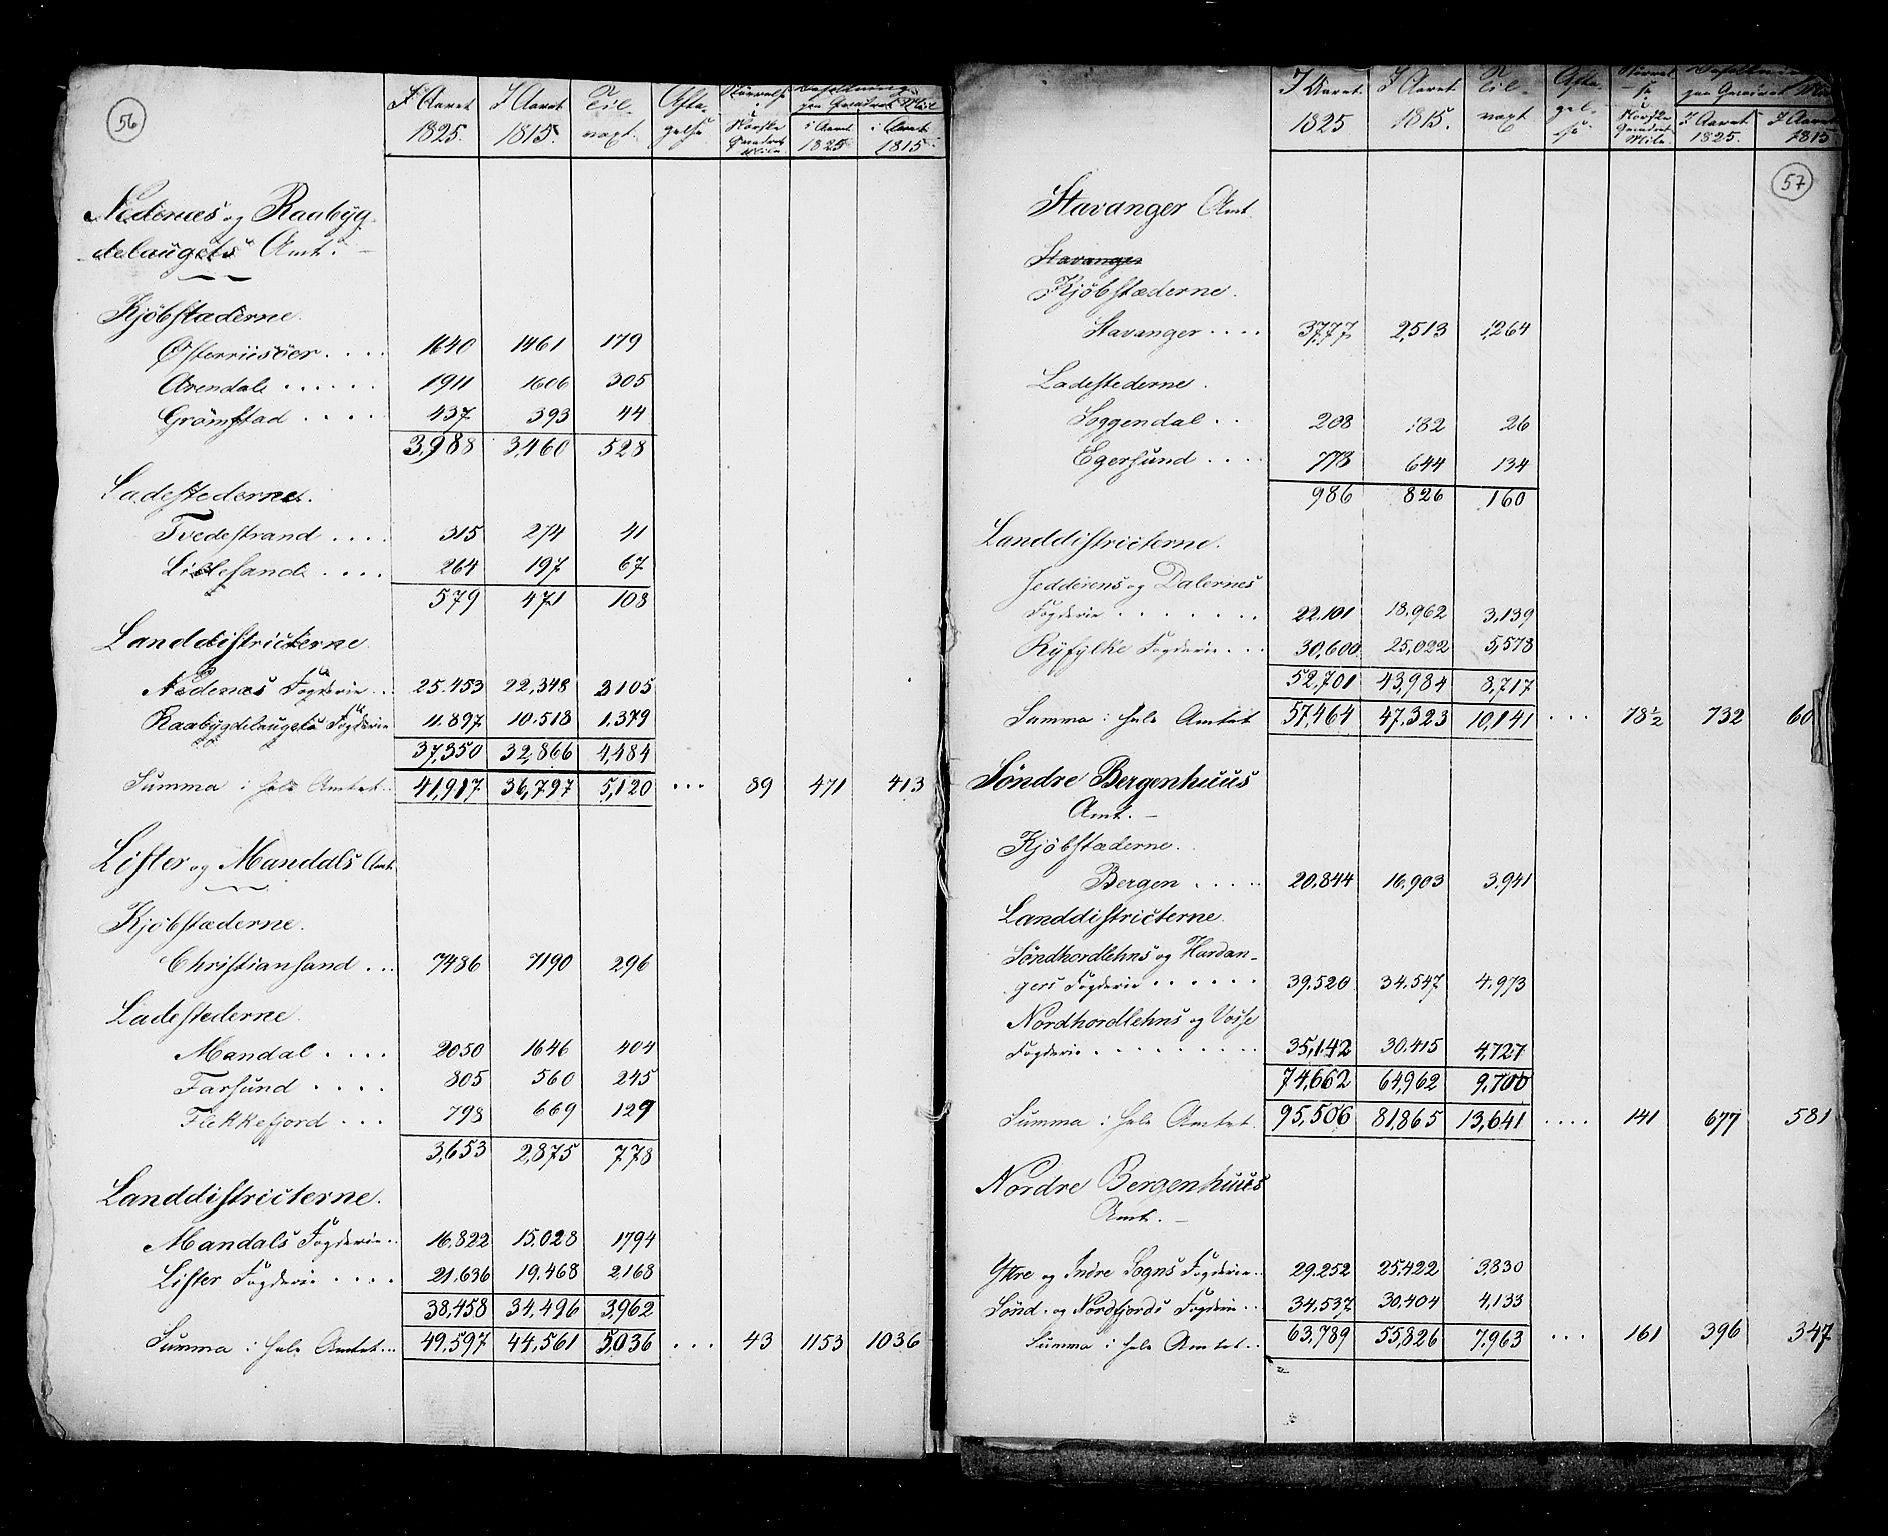 56
I Aaret 1825. I Aaret 1815. Til-vaxt. Afta-gelse Størrelse i Norske Qvadrat Mile Befolkning paa Qvadrat Miil i Aaret 1825 i Aaret 1815.
Nedenæs og Raabÿg-
delaugets Amt. —
Kjöbstæderne.
Østerriisöer . . . . 1640 1461 179
Arendal . . . . . . 1911 1606 305
Grömstad . . . . 437 393 44
3,988 3,460 528
Ladestederne.
Tvedestrand . . . . 315 274 41
Lillesand . . . . 264 197 67
579 471 108
Landdistricterne
Nedenæs Fogderie . . 25.453 22,348 3105
Raabÿgdelaugets Fogderie 11.897 10.518 1.379
37,350 32,866 4,484
Summa i hele Amtet . . 41,917 36,797 5,120 . . . 89 471 413
Lister og Mandals Amt.
Kjöbstæderne.
Christiansand . . . 7486 7190 296
Ladestederne.
Mandal . . . . 2050 1646 404
Farsund . . . . 805 560 245
Flekkefjord . . . 798 669 129
3,653 2,875 778
Landdistricterne.
Mandals Fogderie . . 16.822 15.028 1794
Lister Fogderie . . . . 21.636 19.468 2168
38,458 34,496 3,962
Summa i hele Amtet . . . 49,597 44,561 5,036 . . . 43 1153 1036
57
I Aaret 1825 I Aaret 1815. Til-vaxt Afta-gel-se Størrelse i Norske Qvadrat Mile. Befolkning paa Qvadrat I Aaret 1825. I Aaret 1815.
Stavanger Amt.
Stavanger
Kjöbstæderne.
Stavanger . . . . 3,777 2,513 1,264
Ladestederne.
Soggendal . . 208 182 26
Egersund . . . . 778 644 134
986 826 160
Landdistricterne.
Jedderens og Dalernes
Fogderie . . . . . . . 22.101 18.962 3,139
Rÿfÿlke Fogderie . . . 30,600 25,022 5,578
52,701 43,984 8,717
Summa i hele Amtet 57,464 47,323 10,141 . . . 78½ 732 60
Söndre Bergenhuus
Amt. —
Kjöbstæderne.
Bergen . . . . . 20.844 16.903 3.941
Landdistricterne.
Söndhordlehns og Hardan-
gers Fogderie . . . . . . 39.520 34.547 4.973
Nordhordlehns og Vosse
Fogderie . . . . . . . . . 35,142 30.415 4,727
74,662 64,962 9,700
Summa i hele Amtet. 95,506 81,865 13,641 . . . . 141 677 581
Nordre Bergenhuus
Amt. —
Ytre og Indre Sogns Fogderie . . 29.252 25.422 3,830
Sönd- og Nordfjords Fogderie . . 34.537 30.404 4,133
Summa i hele Amtet . . 63,789 55,826 7,963 . . . 161 396 347